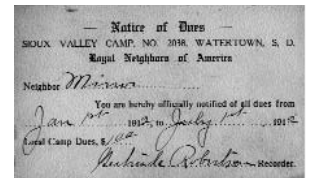 — Notice of Dues —
SIOUX VALLEY CAMP, NO. 2038, WATERTOWN, S. D.
Royal Neighbors of America
Neighbor
You are hereby officially notified of all dues from
Jan 1st 1912, to July 1st 191
Local Camp Dues, $1.00
Gertrude Robertson Recorder.